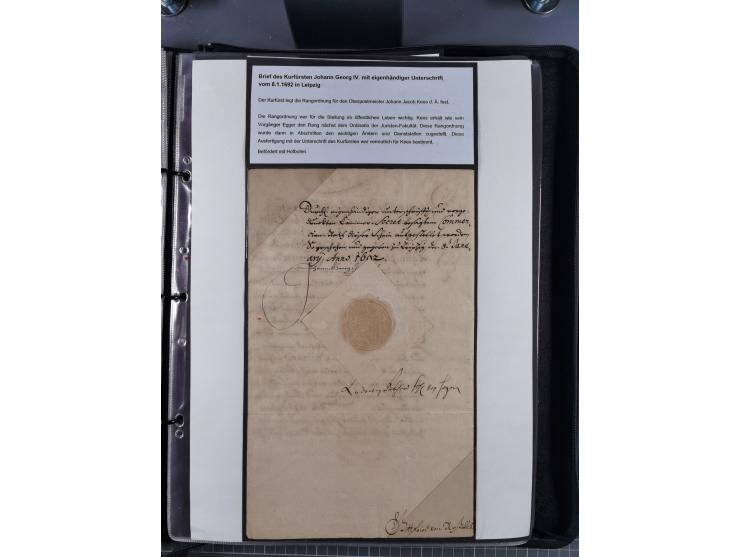 Brief des Kurfürsten Johann Georg IV. mit eigenhändiger Unterschrift
vom 8.1.1692 in Leipzig
Der Kurfürst legt die Rangordnung für den Oberpostmeister Johann Jacob Kees d. Ä. fest.
Die Rangordnung war für die Stellung im öffentlichen Leben wichtig. Kees erhält wie sein
Vorgänger Egger den Rang nächst dem Ordinario der Juristen-Fakultät. Diese Rangordnung
wurde dann in Abschriften den wichtigen Ämtern und Dienststellen zugestellt. Diese
Ausfertigung mit der Unterschrift des Kurfürsten war vermutlich für Kees bestimmt.
Befördert mit Hofboten
eigenhändiger unterschrifft und vorge
druckten Cammer-Secret
worden
So geschehen und gegeben zu Leipzig den 8. Janu
arij Anno 1692.